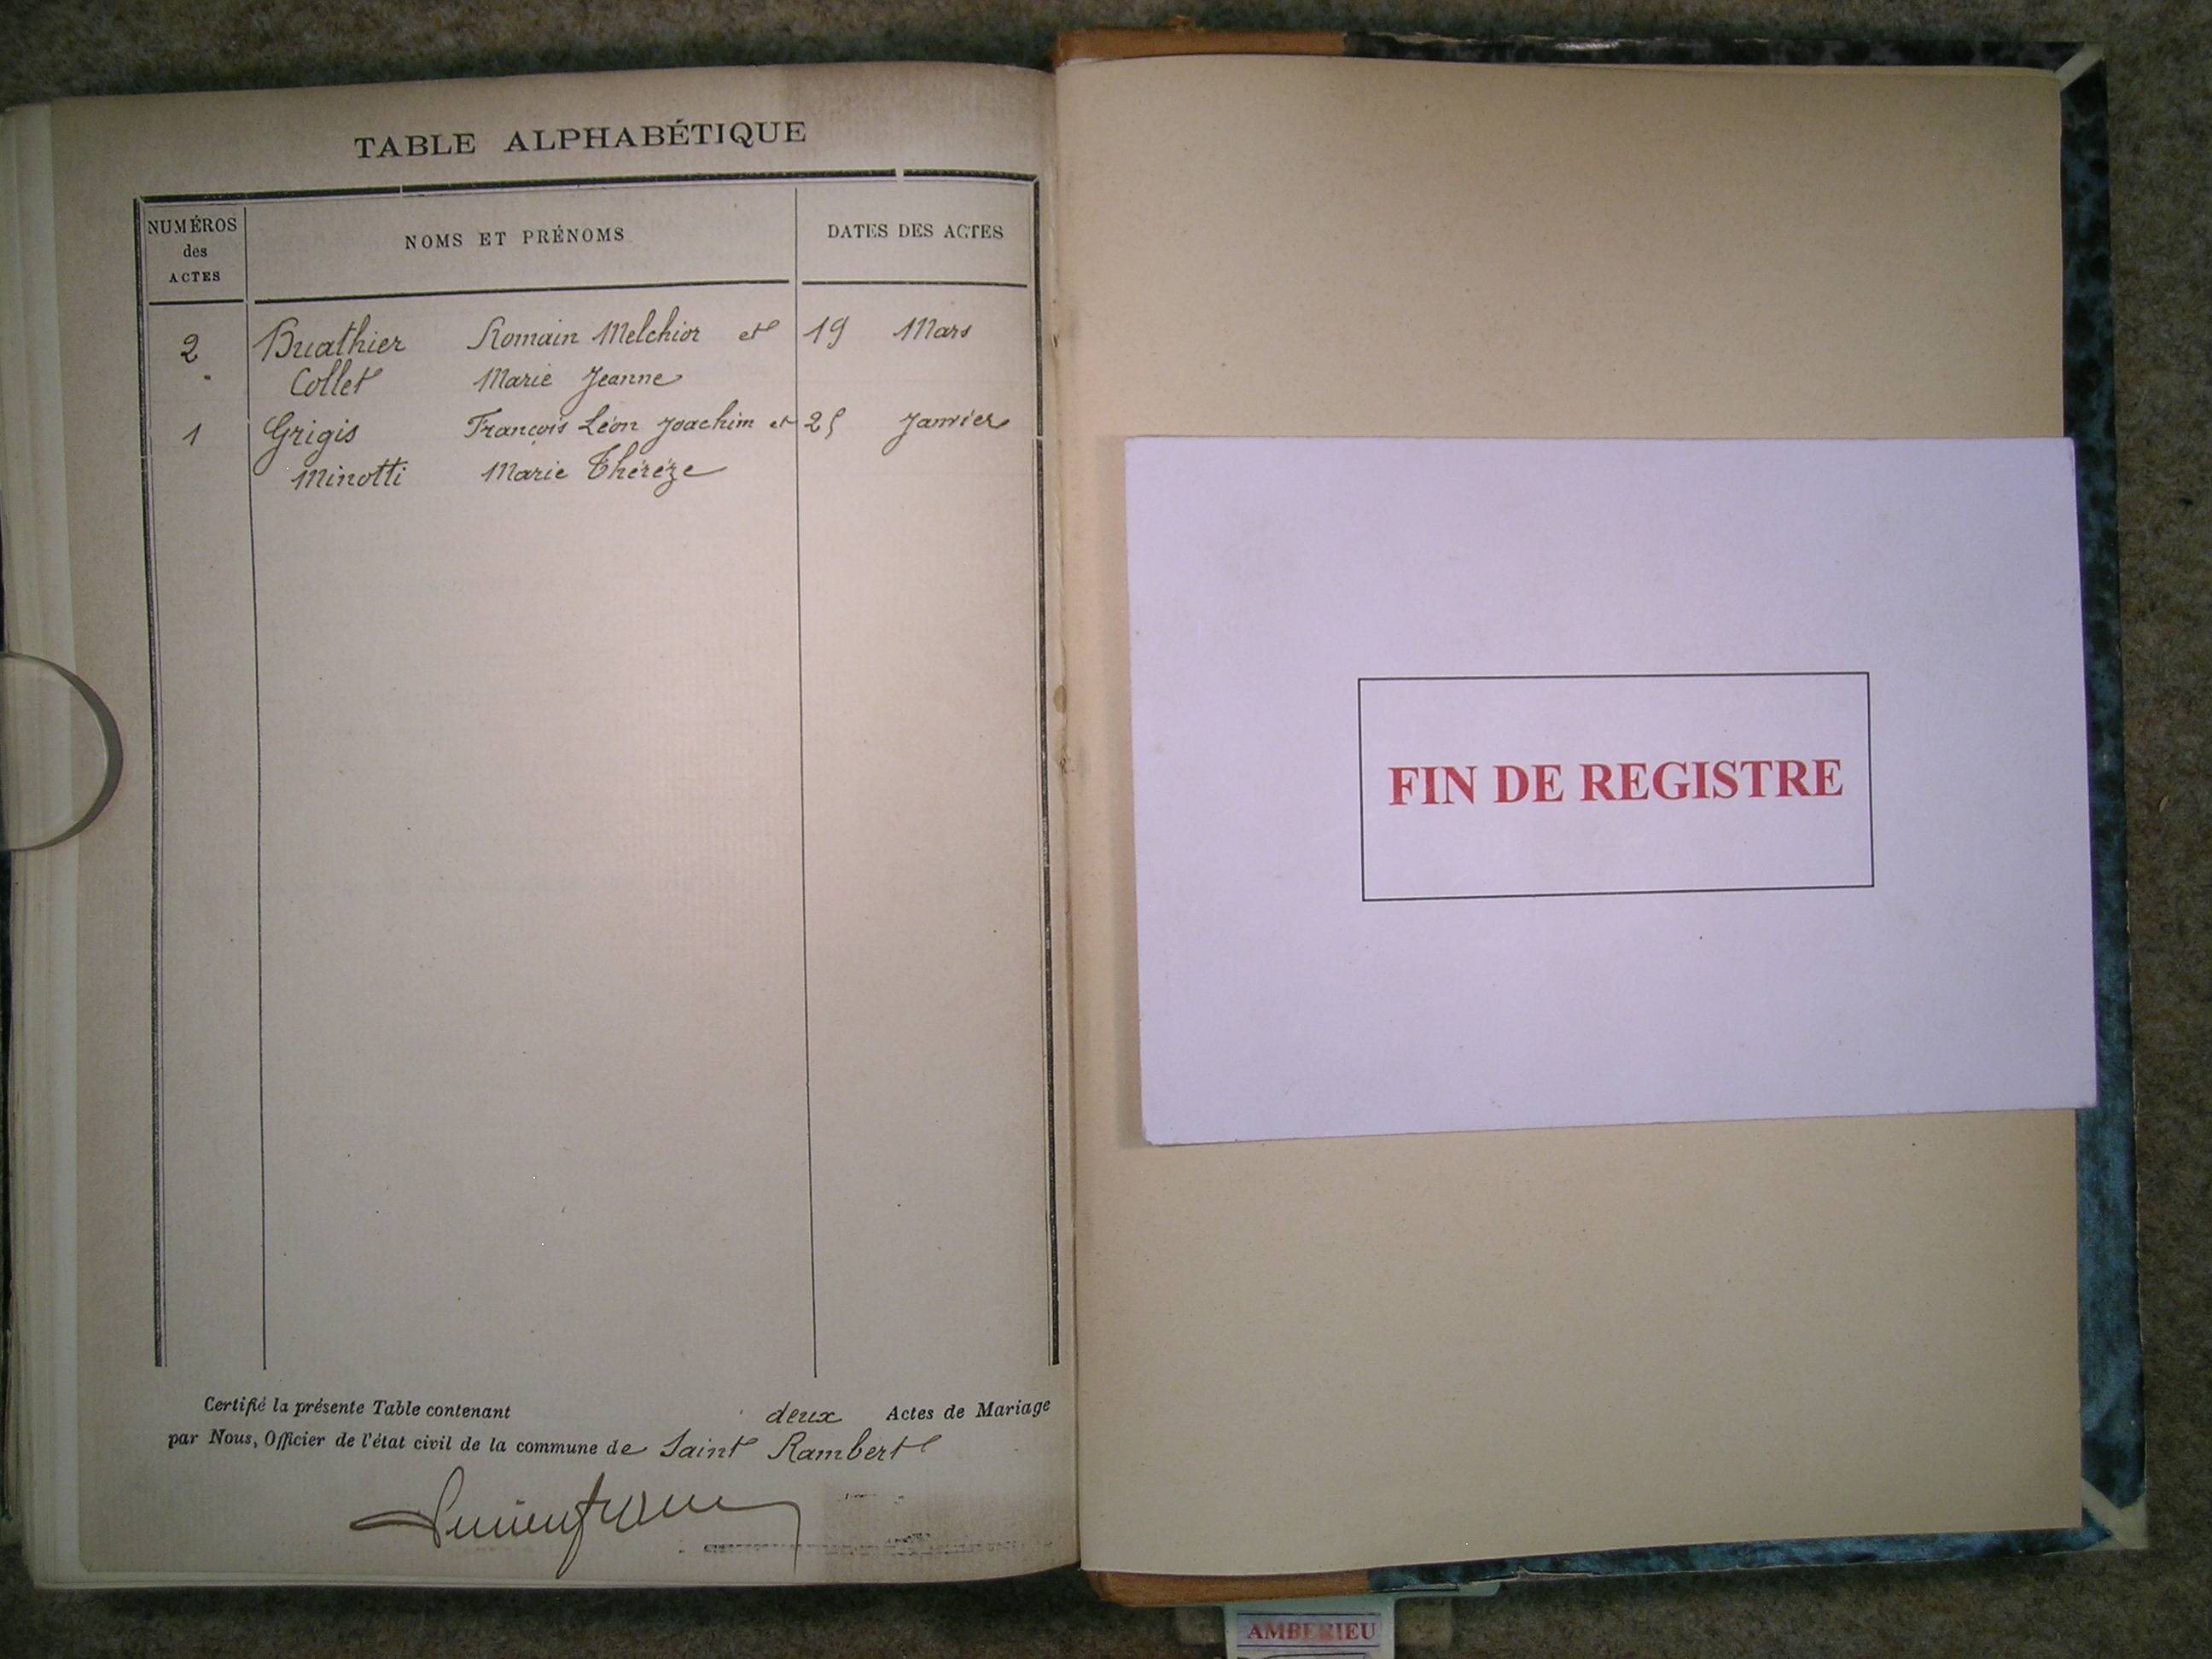 TABLE ALPHABÉTIQUE
NUMÉROS
des
ACTES
NOMS ET PRÉNOMS
DATES DES ACTES
2 Buathier Romain Melchior et 19 Mars
Collet Marie Jeanne
1 Grigis François Léon Joachim et 25 Janvier
Minotti Marie Théréze
Certifié la présente Table contenant deux Actes de Mariage
par Nous, Officier de l'état civil de la commune de Saint Rambert
FIN DE REGISTRE
AMBERIEU